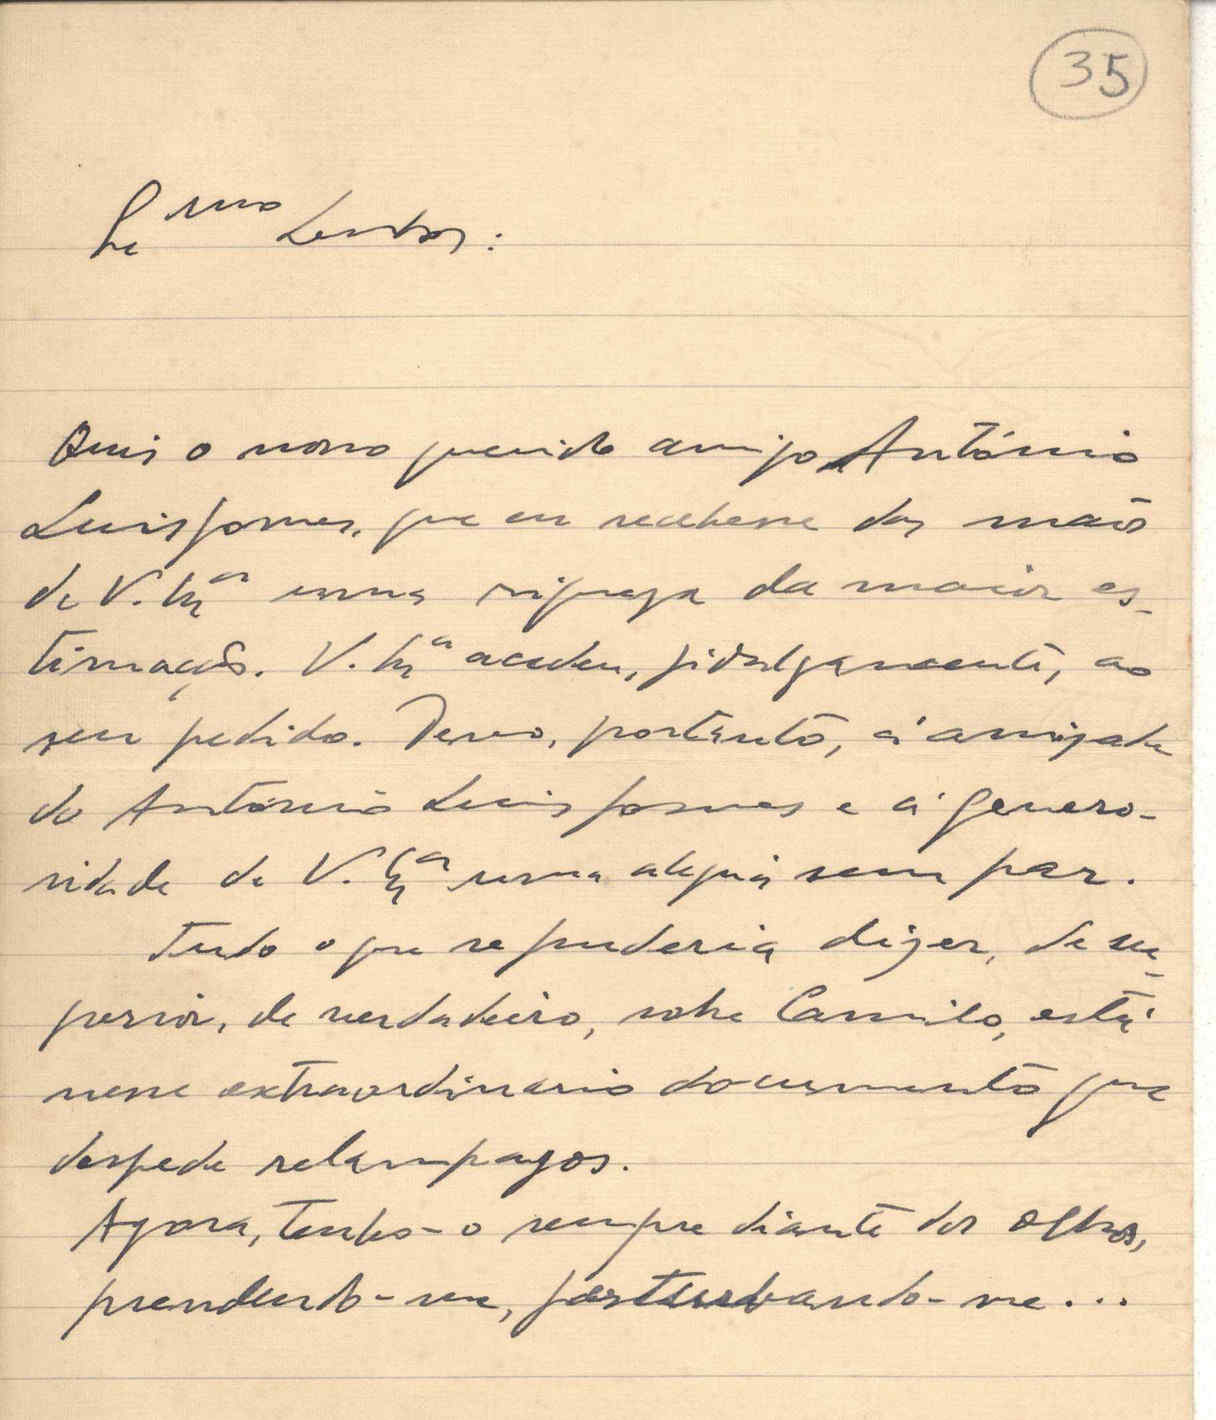 35
Ex.mo Senhor:
Quis o nosso querido amigo António
Luis Gomes, que eu recebesse das mãos
de V. Ex.a uma riqueza da maior es-
timação. V. Ex.a acedeu, fidalgamente, ao
seu pedido. Devo, portanto, á amizade
do António Luis Gomes e á genero-
sidade de V. Ex.a uma alegria sem par.
Tudo o que se puderia dizer, de su-
perior, de verdadeiro, sobre Camilo, está
nesse extraordinario documento que
despede relampagos.
Agora, tenho-o sempre diante dos olhos,
prendendo-me, perturbando-me...